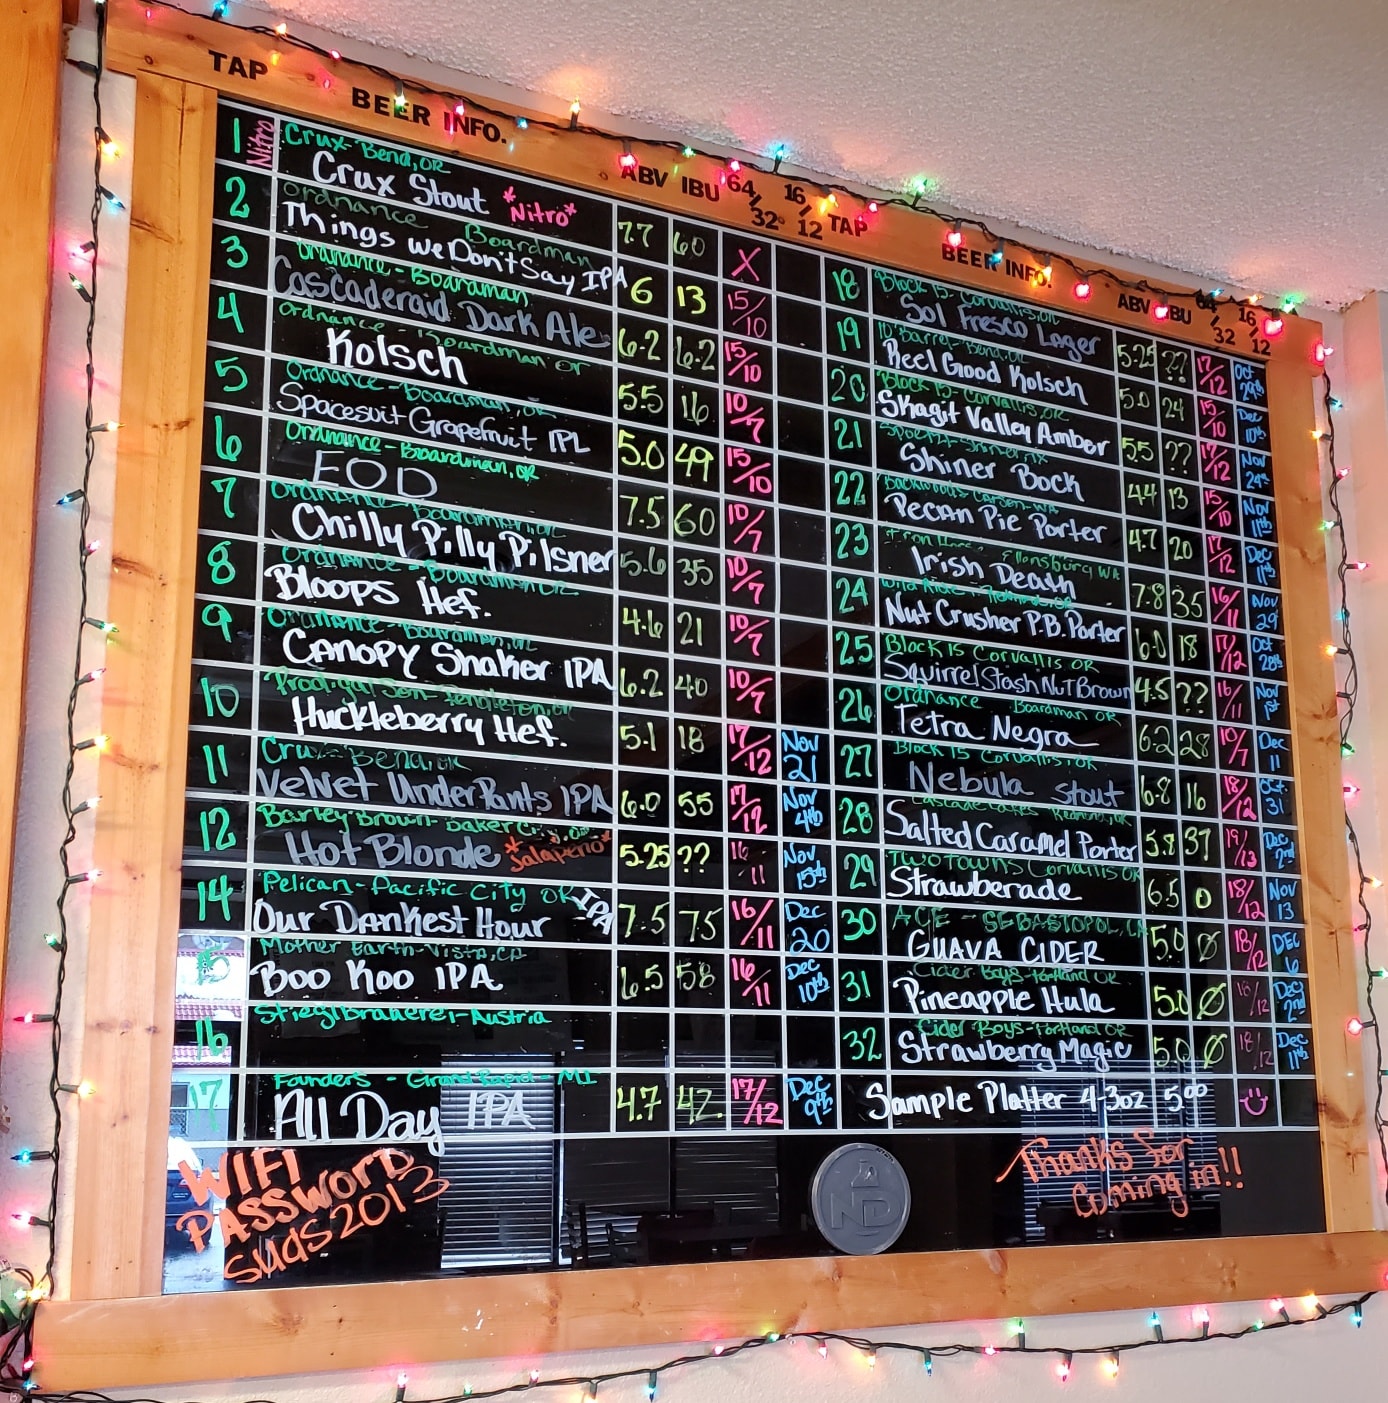 TAP BEER INFO. ABV IBU 64/32 16/12 TAP BEER INFO. ABV IBU 64/32 16/12
1 Nitro Crux-Bend, OR
Crux Stout *Nitro* 7.7 60 X
2 Ordnance Boardman
Things we Don't Say IPA 6 13 15/10
3 Ordnance-Boardman
Cascaderaid Dark Ale 6.2 6.2 15/10
4 Ordnance-Boardman or
Kolsch 5.5 16 10/7
5 Ordnance-Boardman, OR
Spacesuit Grapefruit IPL 5.0 49 15/10
6 Ordnance-Boardman, OR
EOD 7.5 60 10/7
7 Ordnance-Boardman, OR
Chilly Pilly Pilsner 5.6 35 10/7
8 Ordnance-Boardman OR
Bloops Hef. 4.6 21 10/7
9 Ordnance-Boardman, OR
Canopy Shaker IPA 6.2 40 10/7
10 Prodigal Son-Pendleton, OR
Huckleberry Hef. 5.1 18 17/12 Nov 21
11 Crux-Bend, OR
Velvet UnderPants IPA 6.0 55 17/12 Nov 4th
12 Barley Brown-Baker City, OR
Hot Blonde *Jalapeño* 5.25 ?? 16/11 Nov 15th
14 Pelican-Pacific City OR
Our Dankest Hour IPA 7.5 75 16/11 Dec 20
15 Mother Earth-Vista, CA
Boo Koo IPA 6.5 58 16/11 Dec 10th
16 Stiegl Brauerei-Austria
17 Founders - Grand Rapid - MI
All Day IPA 4.7 42 17/12 Dec 9th
18 Block 15-Corvallis, OR
Sol Fresco Lager 5.25 ?? 17/12 Oct 29th
19 10 Barrel-Bend, OR
Reel Good Kolsch 5.0 24 15/10 Dec 10th
20 Block 15-Corvallis, OR
Skagit Valley Amber 5.5 ?? 17/12 Nov 24th
21 Shiner TX
Shiner Bock 4.4 13 15/10 Nov 11th
22 Backwoods Carson-WA
Pecan Pie Porter 4.7 20 17/12 Dec 11th
23 Iron Horse-Ellensburg WA
Irish Death 7.8 35 16/11 Nov 29
24 Wild Ride-Redmond, OR
Nut Crusher P.B. Porter 6.0 18 17/12 Oct 28th
25 Block 15 Corvallis OR
Squirrel Stash Nut Brown 4.5 ?? 16/11 Nov 1st
26 Ordnance Boardman OR
Tetra Negra 6.2 28 10/7 Dec 11
27 Block 15 Corvallis OR
Nebula Stout 6.8 16 18/12 Oct. 31
28 Redmond, OR
Salted Caramel Porter 5.8 37 19/13 Dec 2nd
29 Two Towns Corvallis OR
Strawberade 6.5 0 18/12 Nov 13
30 ACE - SEBASTOPOL, CA
GUAVA CIDER 5.0 Ø 18/12 DEC 6
31 Cider Boys-Portland OR
Pineapple Hula 5.0 Ø 18/12 Dec 2nd
32 Cider Boys-Portland OR
Strawberry Magic 5.0 Ø 18/12 Dec 11th
Sample Platter 4-3oz 5.00
WIFI
PASSWORD
Suds2013
ND
Thanks for
Coming in!!